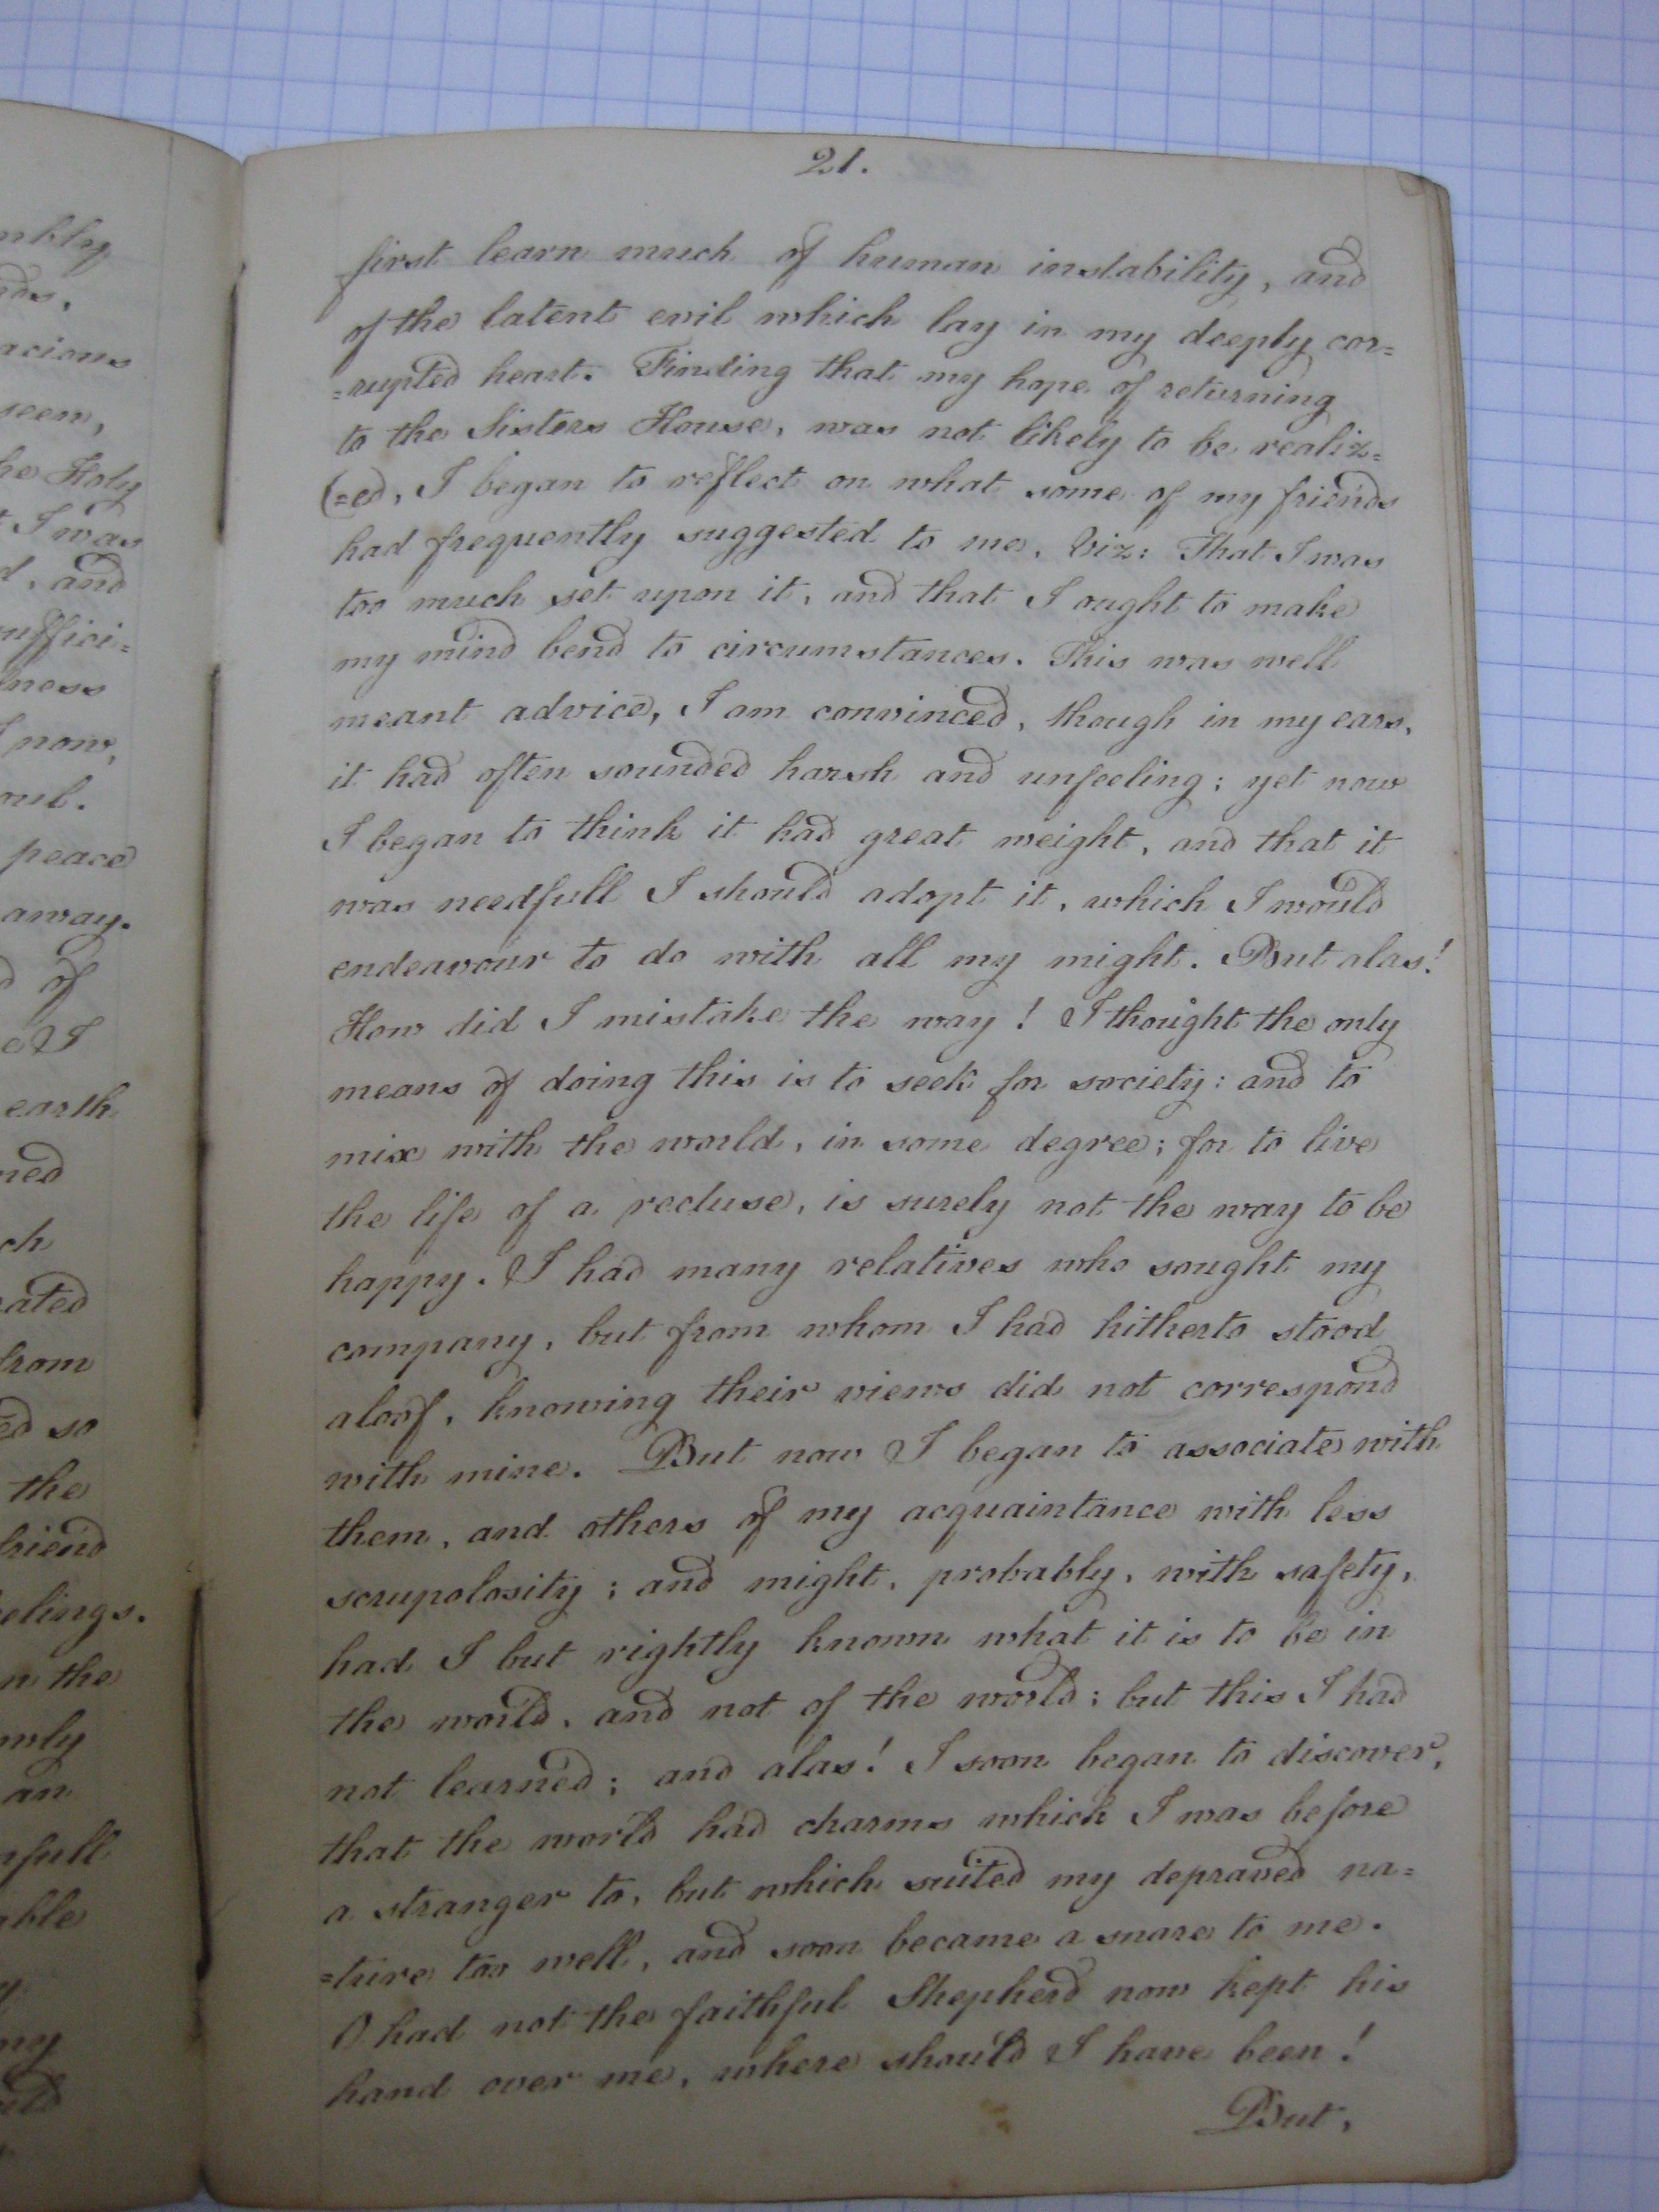 mbly
ads.
acious
seem,
he Holy
t I was
d, and
suffici=
ness
I now,
oul.
peace
away.
d of
e I
earth
ned
ch
eated
from
ed so
the
friend
eelings.
n the
owly
an
nfull
able
y
my
21.
first learn much of human instability, and
of the latent evil which lay in my deeply cor=
=rupted heart. Finding that my hope of returning
to the Sisters House, was not likely to be realiz=
(=ed, I began to reflect on what some of my friends
had frequently suggested to me, Viz: That I was
too much set upon it, and that I ought to make
my mind bend to circumstances. This was well
meant advice, I am convinced, though in my ears,
it had often sounded harsh and unfeeling; yet now
I began to think it had great weight, and that it
was needfull I should adopt it, which I would
endeavour to do with all my might. But alas!
How did I mistake the way! I thought the only
means of doing this is to seek for society: and to
mix with the world, in some degree; for to live
the life of a recluse, is surely not the way to be
happy. I had many relatives who sought my
company, but from whom I had hitherto stood
aloof, knowing their views did not correspond
with mine. But now I began to associate with
them, and others of my acquaintance with less
scrupolosity; and might, probably, with safety,
had I but rightly known what it is to be in
the world, and not of the world; but this I had
not learned; and alas! I soon began to discover,
that the world had charms which I was before
a stranger to, but which suited my depraved na=
=ture too well, and soon became a snare to me.
O had not the faithful Shepherd now kept his
hand over me, where should I have been!
But,